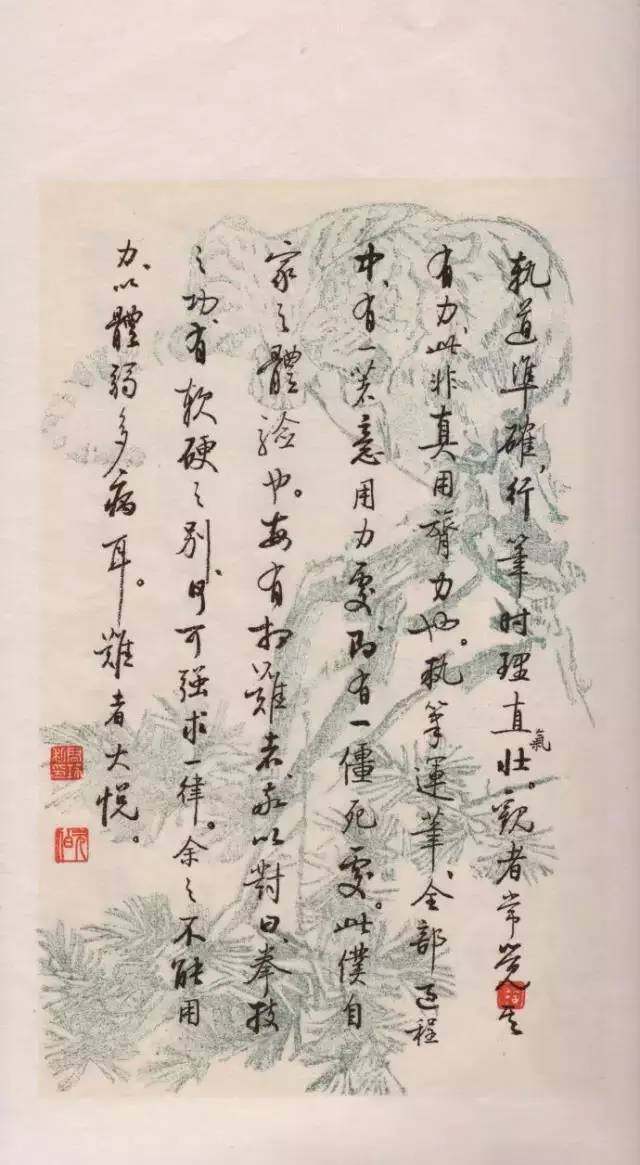 軌道準確，行筆時理直氣壯。觀者常覺其
有力，此非真用膂力也。執筆運筆，全部過程
中，有一著意用力處，即有一僵死處。此僕自
家之體驗也。每有相難者，敬以對曰，拳技
之功，有軟硬之別，何可強求一律。余之不能用
力，以體弱多病耳。難者大悅。